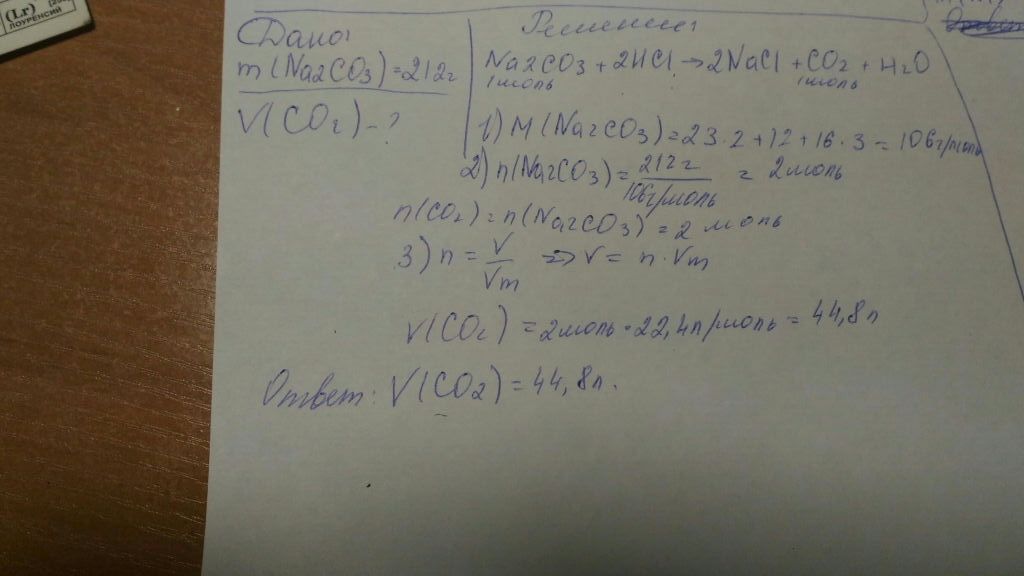 (Lr)
ЛОУРЕНСИЙ
Дано:
m(Na2CO3)=212г
V(CO2)-?
Решение:
Na2CO3+2HCl→2NaCl+CO2+H2O
1моль 1моль
1) M(Na2CO3)=23·2+12+16·3=106г/моль
2) n(Na2CO3)=212г/106г/моль = 2моль
n(CO2)=n(Na2CO3)=2 моль
3) n=V/Vm =>V= n·Vm
V(CO2)=2моль·22,4л/моль=44,8л
Ответ: V(CO2)=44,8л.